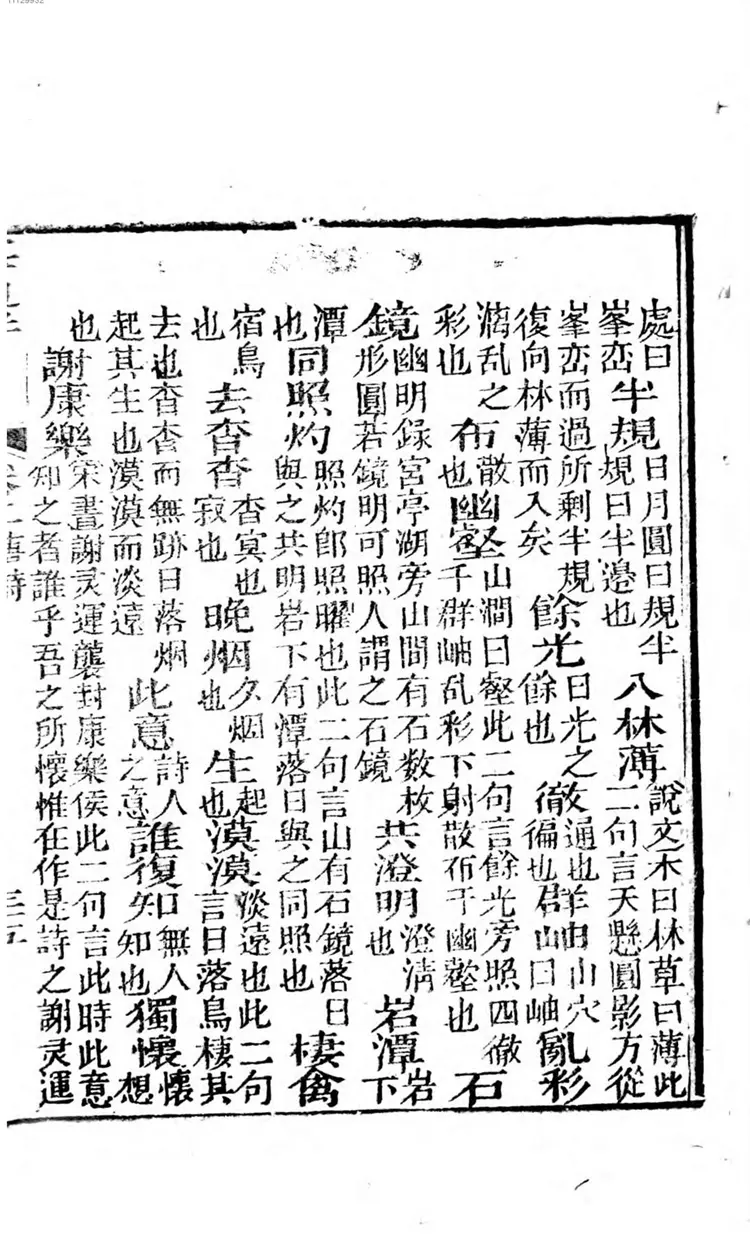 處曰峯峦半規日月圓曰規半規曰半邊也入林薄說文木曰林草曰薄此二句言天懸圓影方從
峯峦而過所剩半規復向林薄而入矣餘光日光之餘也徹通也徧也群岫山穴曰岫亂彩
漪乱之彩也布散也幽壑山澗曰壑此二句言餘光旁照四徹于群岫乱彩下射散布于幽壑也石
鏡幽明錄宮亭湖旁山間有石数枚形圓若鏡明可照人謂之石鏡共澄明澄清也岩潭岩下
潭也同照灼照灼卽照曜也此二句言山有石鏡落日與之共明岩下有潭落日與之同照也棲禽
宿鳥也去杳杳杳寞也寂也晚烟夕烟也生起也漠漠淡遠也此二句言日落鳥棲其
去也杳杳而無跡日落烟起其生也漠漠而淡遠此意詩人之意誰復知口無人知也獨懷懷想
也謝康樂宋書謝灵運襲封康樂侯此二句言此時此意知之者誰乎吾之所懷惟在作是詩之謝灵運